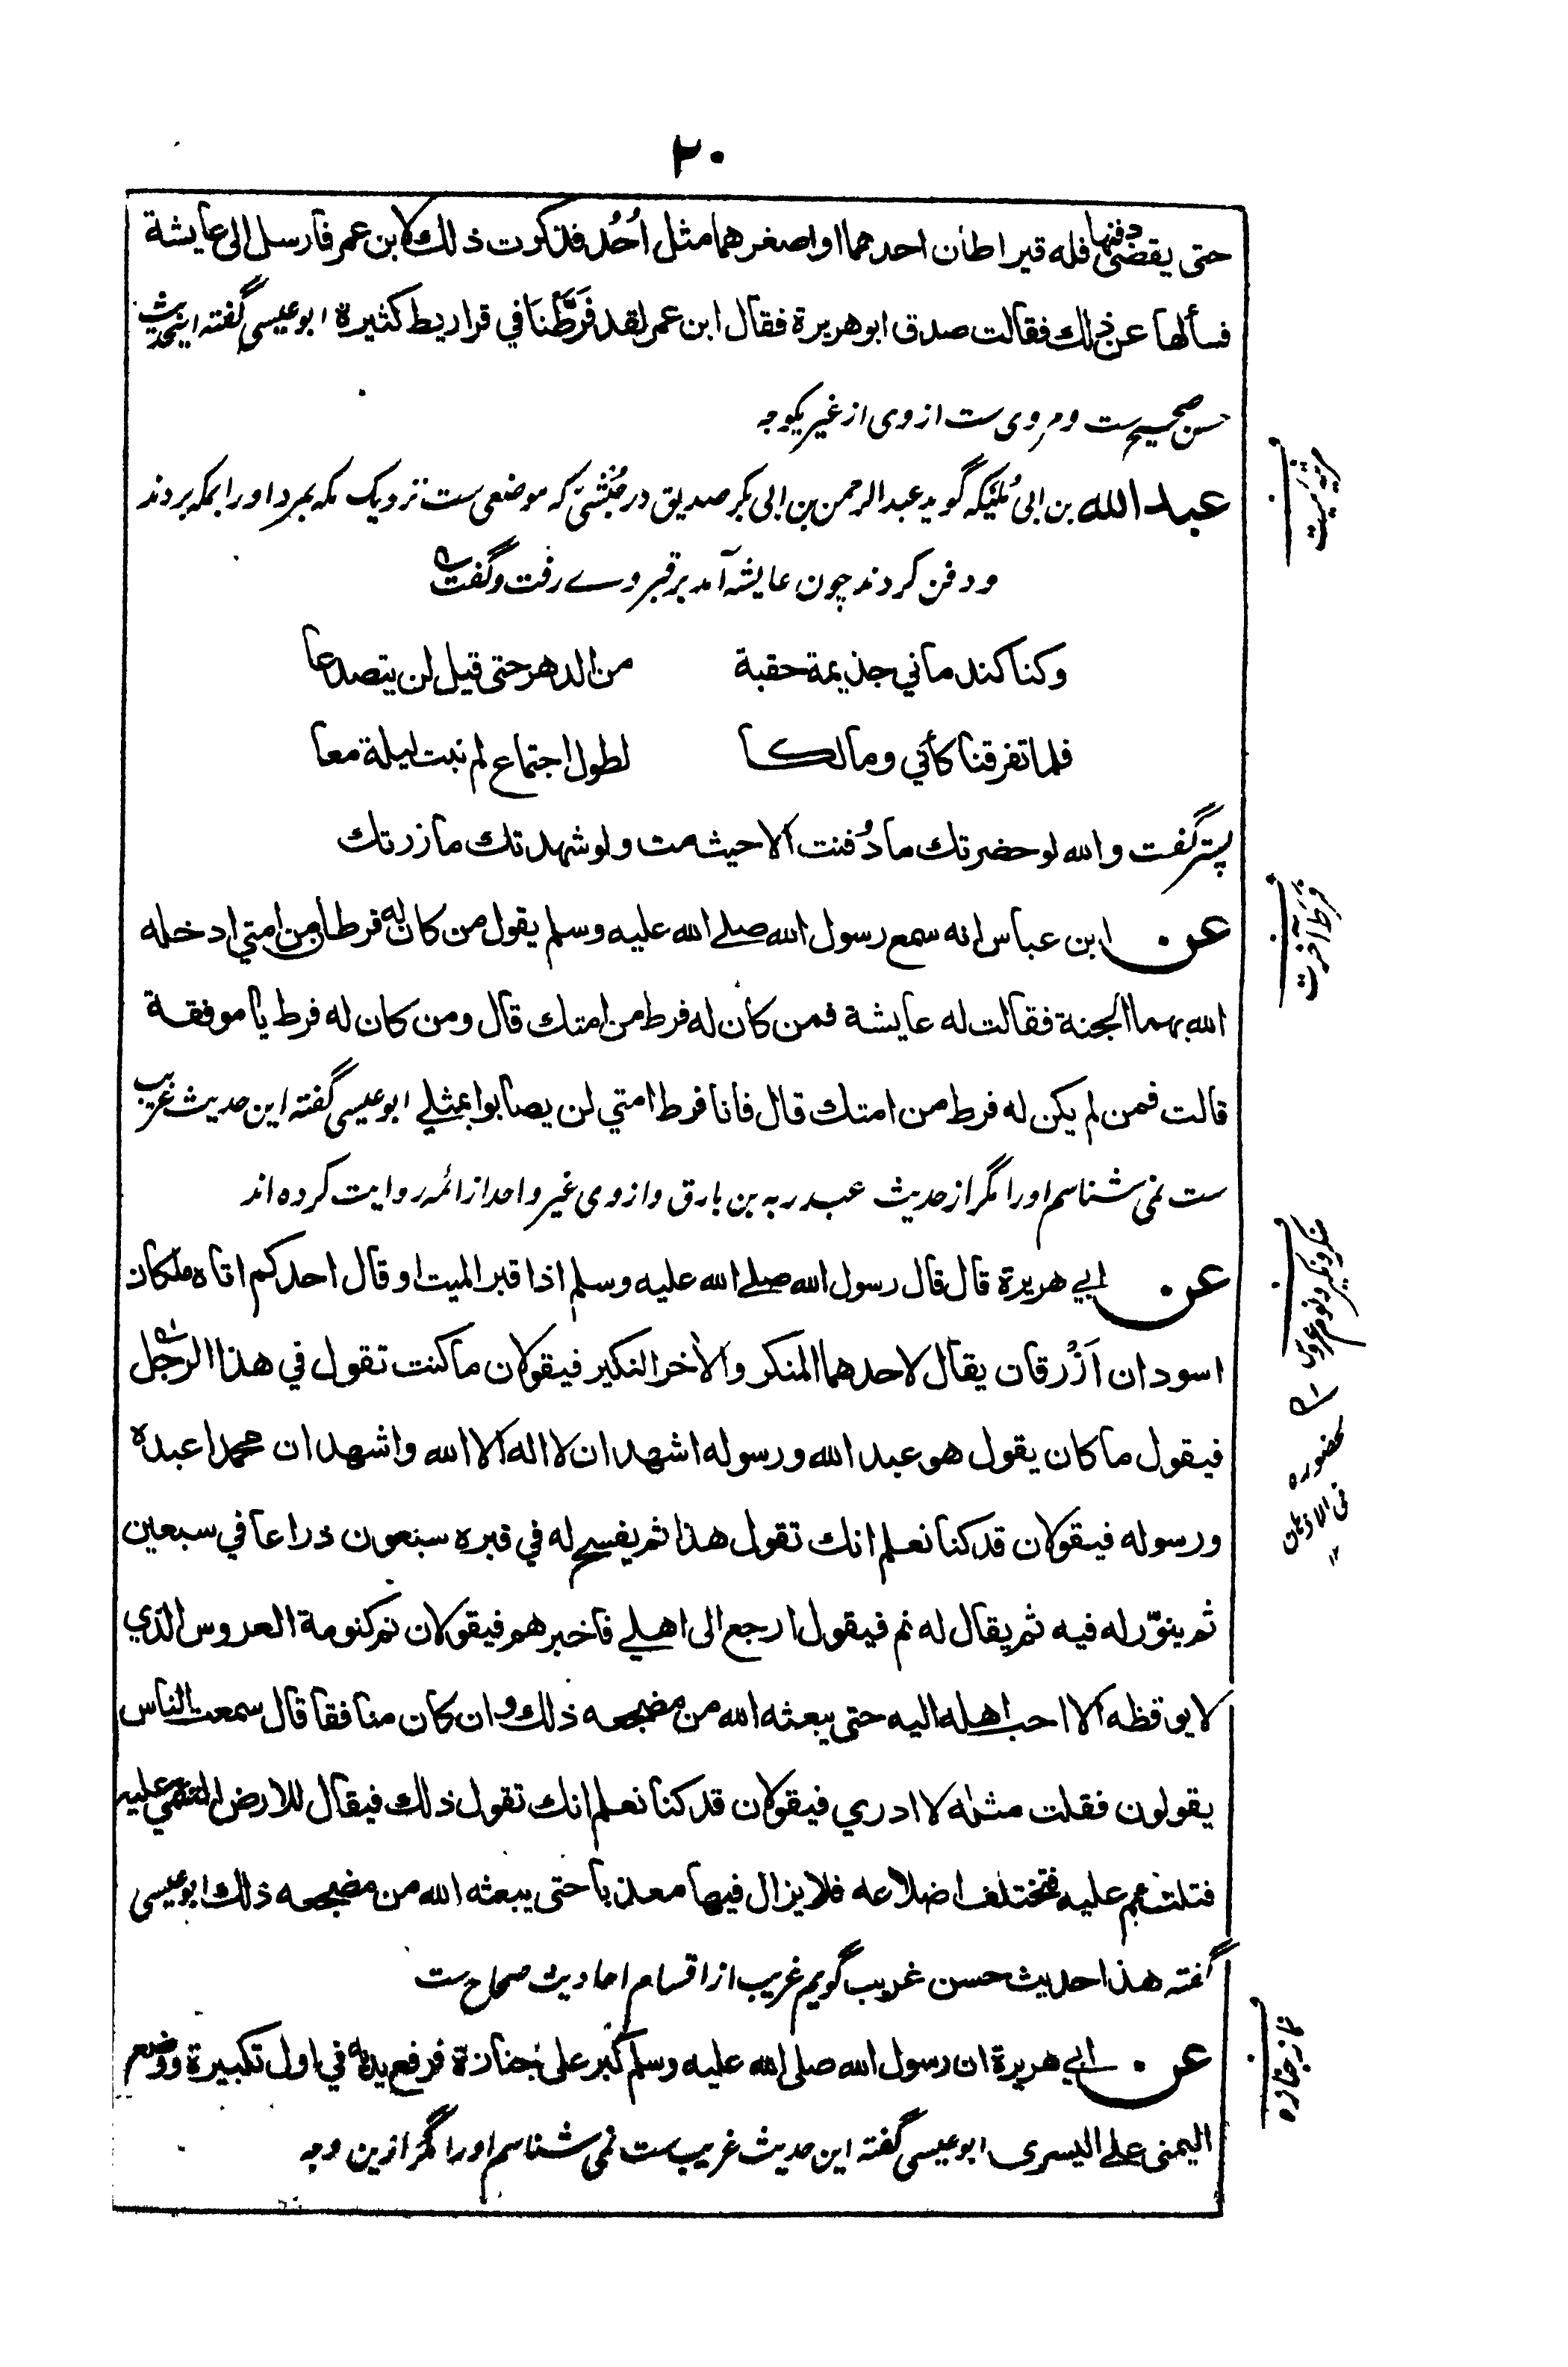 ۲۰
حتى يقضى دفنها فله قيراطان احدهما او اصغرهما مثل اُحُد فذكرت ذلك لابن عمر فارسل الى عايشة
فسألها عن ذلك فقالت صدق ابو هريرة فقال ابن عمر لقد فَرَّطْنَا في قراريط كثيرة ابو عيسى گفته اينحديث
حسن صحيح ست و مروى ست از وى از غير يكوجه
مرثيه ميت
عبد الله بن ابى مُلَيكه گويد عبد الرحمن بن ابى بكر صديق در حُبْشَىّ كه موضعى ست نزديك مكه بمرد او را بمكه بردند
و دفن كردند چون عايشه آمد بر قبر وے رفت و گفت
وكنا كندماني جذيمة حقبة من الدهر حتى قيل لن يتصدعا
فلما تفرقنا كأني ومالكا لطول اجتماع لم نبت ليلة معا
پستر گفت والله لو حضرتك ما دُفنت الا حيث مت ولو شهدتك ما زرتك
فَرَط آخرت
عن ابن عباس انه سمع رسول الله صلے الله عليه وسلم يقول من كان له فرطان من امتي ادخله
الله بهما الجنة فقالت له عايشة فمن كان له فرط من امتك قال ومن كان له فرط يا موفقة
قالت فمن لم يكن له فرط من امتك قال فانا فرط امتي لن يصابوا بمثلي ابو عيسى گفته اين حديث غريب
ست نمى شناسم او را مگر از حديث عبد ربه بن بارق و از وى غير واحد از ائمه روايت كرده اند
منكر و نكير و نوم عروس
عن ابي هريرة قال قال رسول الله صلے الله عليه وسلم اذا قبر الميت او قال احدكم اتاه ملكان
اسودان اَزْرقان يقال لاحدهما المنكر والأخر النكير فيقولان ما كنت تقول في هذا الرجل
لحضوره
فى الاذهان
١٢
فيقول ما كان يقول هو عبد الله ورسوله اشهد ان لا اله الا الله واشهد ان محمدا عبده
ورسوله فيقولان قد كنا نعلم انك تقول هذا ثم يفسح له في قبره سبعون ذراعا في سبعين
ثم ينوّر له فيه ثم يقال له نم فيقول ارجع الى اهلي فاخبرهم فيقولان نم كنومة العروس الذي
لا يوقظه الا احب اهله اليه حتى يبعثه الله من مضجعه ذلك وان كان منافقا قال سمعت الناس
يقولون فقلت مثله لا ادري فيقولان قد كنا نعلم انك تقول ذلك فيقال للارض التئمي عليه
فتلتئم عليه فتختلف اضلاعه فلا يزال فيها معذبا حتى يبعثه الله من مضجعه ذلك ابو عيسى
گفته هذا حديث حسن غريب گويم غريب از اقسام احاديث صحاح ست
نماز جنازه
عن ابي هريرة ان رسول الله صلى الله عليه وسلم كبر على جنازة فرفع يديه في اول تكبيرة ووضع
اليمنى على اليسرى ابو عيسى گفته اين حديث غريب ست نمى شناسم او را مگر ازين وجه